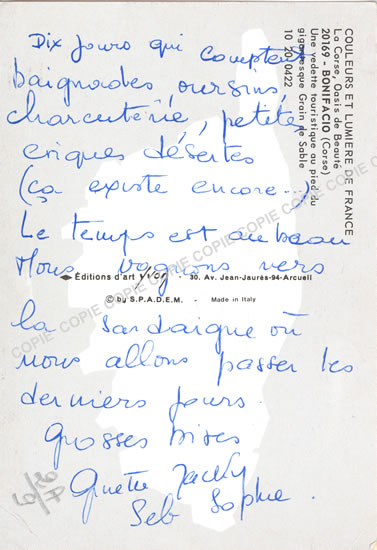 COULEURS ET LUMIERE DE FRANCE
La Corse, Oasis de Beauté
20169 - BONIFACIO (Corse)
Une vedette touristique au pied du
gigantesque Grain de Sable
10 20 0422
Dix jours qui comptent
baignades oursins,
charcuterie, petites
criques désertes
(ça existe encore...)
Le temps est au beau
Nous voguons vers
Éditions d'art Yvon - 30, Av. Jean-Jaurès-94-Arcueil
© by S.P.A.D.E.M. - Made in Italy
la Sardaigne où
nous allons passer les
derniers jours.
Grosses bises
Jacky
Seb Sophie.
COPIE COPIE COPIE COPIE COPIE COPIE
COPIE COPIE COPIE COPIE COPIE COPIE